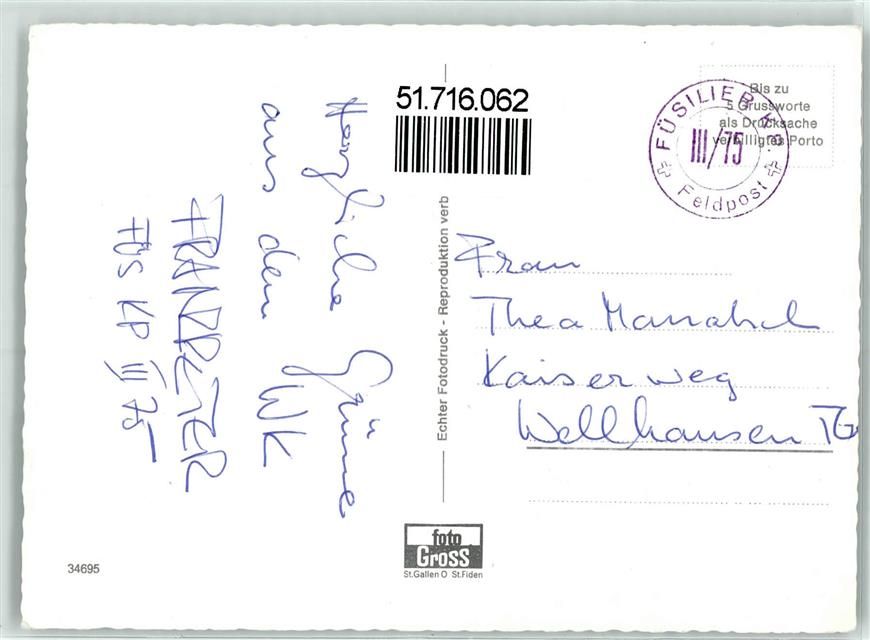 Herzliche Grüsse
aus dem WK
FRANZPETER
FÜS KP III/75
51.716.062
Bis zu
5 Grussworte
als Drucksache
verbilligtes Porto
FÜSILIER KP.
III/75
Feldpost
Frau
Thea
Kaiserweg
Wellhausen TG
Echter Fotodruck - Reproduktion verb
foto
Gross
St.Gallen O St.Fiden
34695